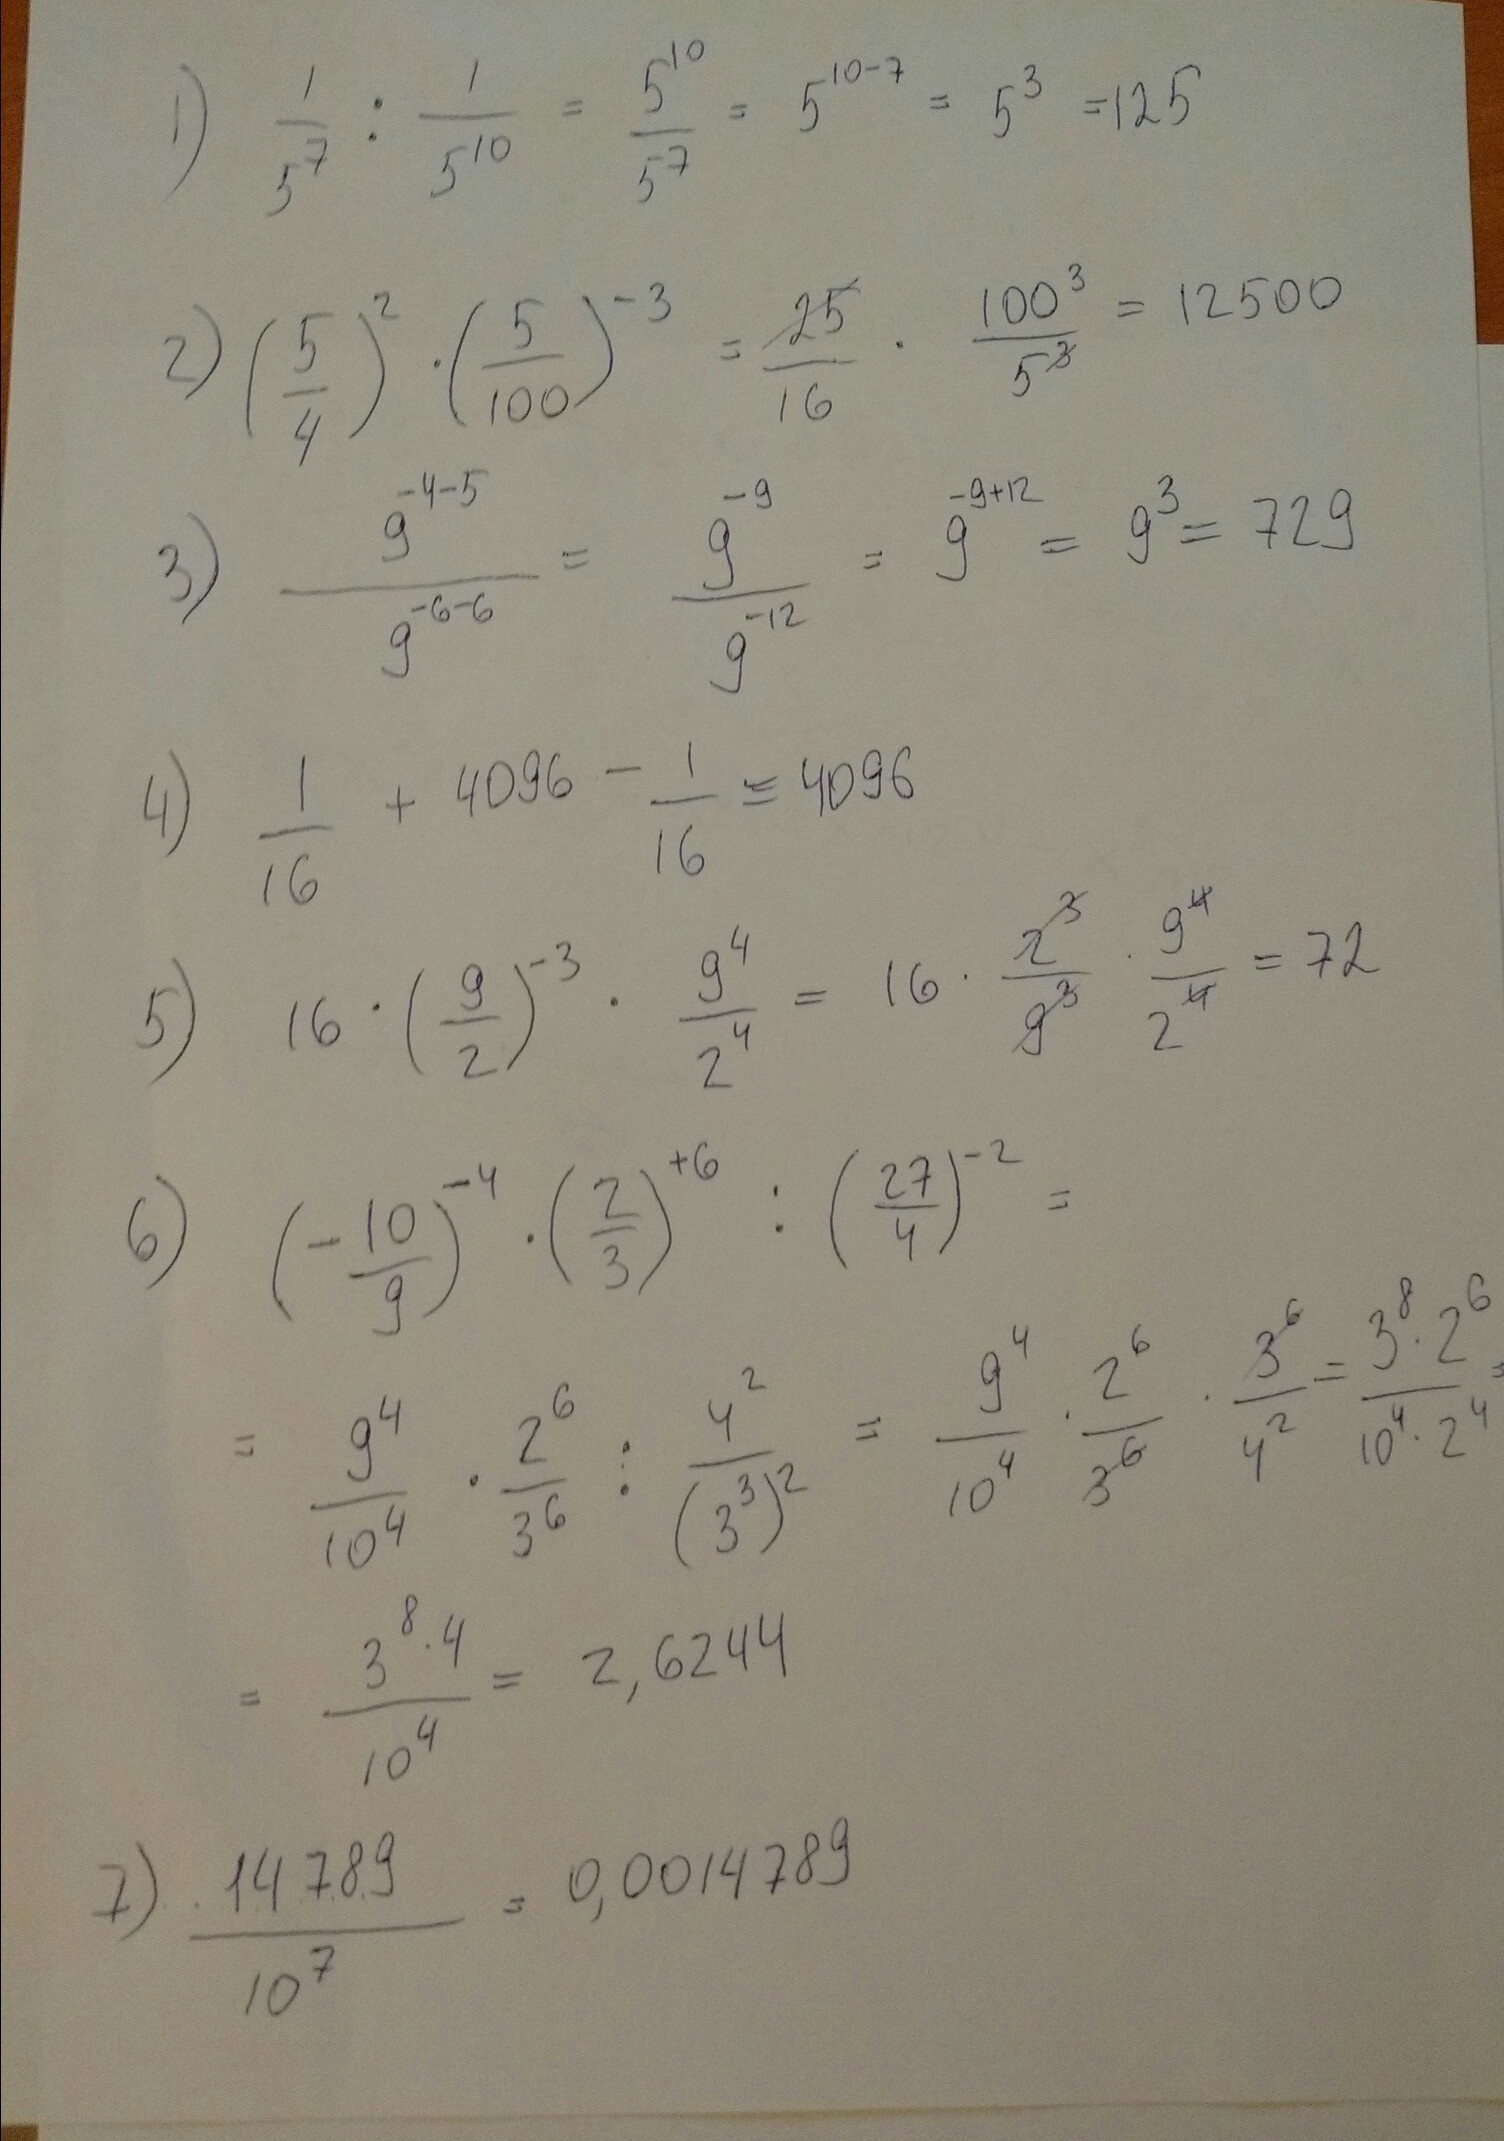 1) 1/5^7 : 1/5^10 = 5^10/5^7 = 5^(10-7) = 5^3 = 125
2) (5/4)^2 · (5/100)^(-3) = 25/16 · 100^3/5^3 = 12500
3) 9^(-4-5)/9^(-6-6) = 9^(-9)/9^(-12) = 9^(-9+12) = 9^3 = 729
4) 1/16 + 4096 - 1/16 = 4096
5) 16 · (9/2)^(-3) · 9^4/2^4 = 16 · 2^3/9^3 · 9^4/2^4 = 72
6) (-10/9)^(-4) · (2/3)^(+6) : (27/4)^(-2) =
= 9^4/10^4 · 2^6/3^6 : 4^2/(3^3)^2 = 9^4/10^4 · 2^6/3^6 · 3^6/4^2 = 3^8 · 2^6/10^4 · 2^4 =
= 3^8 · 4/10^4 = 2,6244
7) 14789/10^7 = 0,0014789